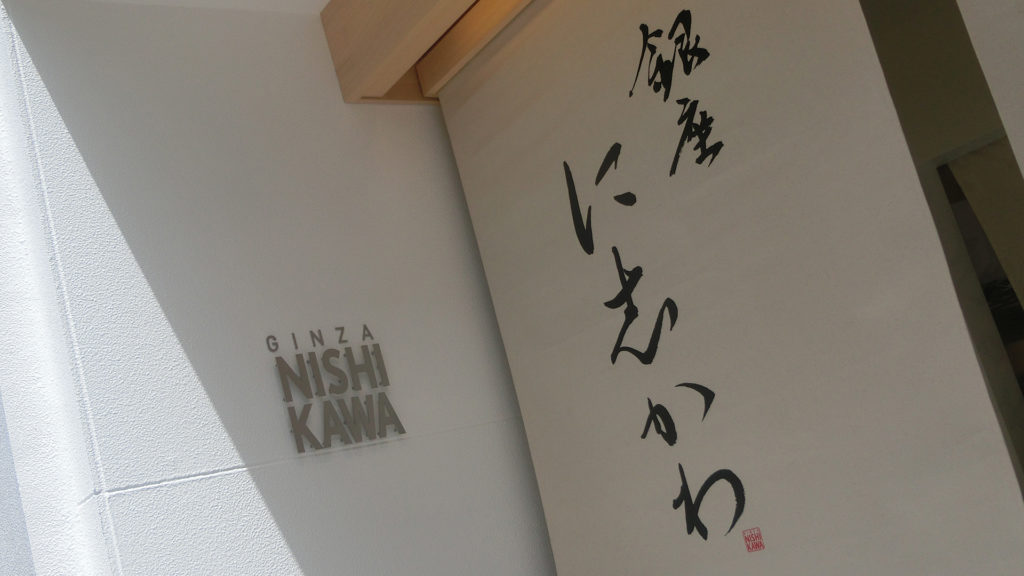 GINZA
NISHI
KAWA
銀座
に志かわ
NISHI
KAWA